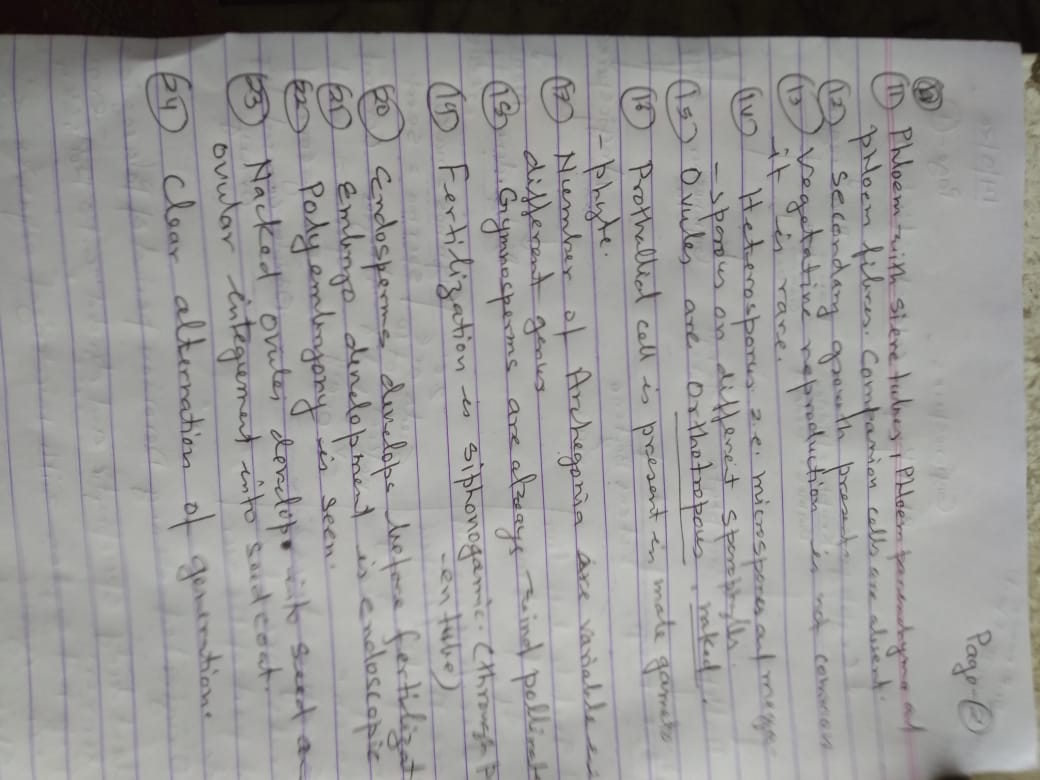 Page-(2)
(11) Phloem-with sieve tubes, Phloem parenchyma and
phloem fibres. Companion cells are absent.
(12) Secondary growth present.
(13) Vegetative reproduction is not common
it is rare.
(14) Heterosporus i.e. microspores and mega
-sporous on different sporophylls.
(15) Ovules are Orthotropous, naked.
(16) Prothallial cell is present in male gameto
-phyte.
(17) Number of Archegonia are variable in
different genus
(18) Gymnosperms are always wind pollinat
(19) Fertilization is siphonogamic. (through p
-en tube)
(20) Endosperms develops before fertilizat
(21) Embryo development is endoscopic
(22) Polyembryony is seen.
(23) Nacked ovules develop into seed a
ovular integement into seed coat.
(24) Clear alternation of generations